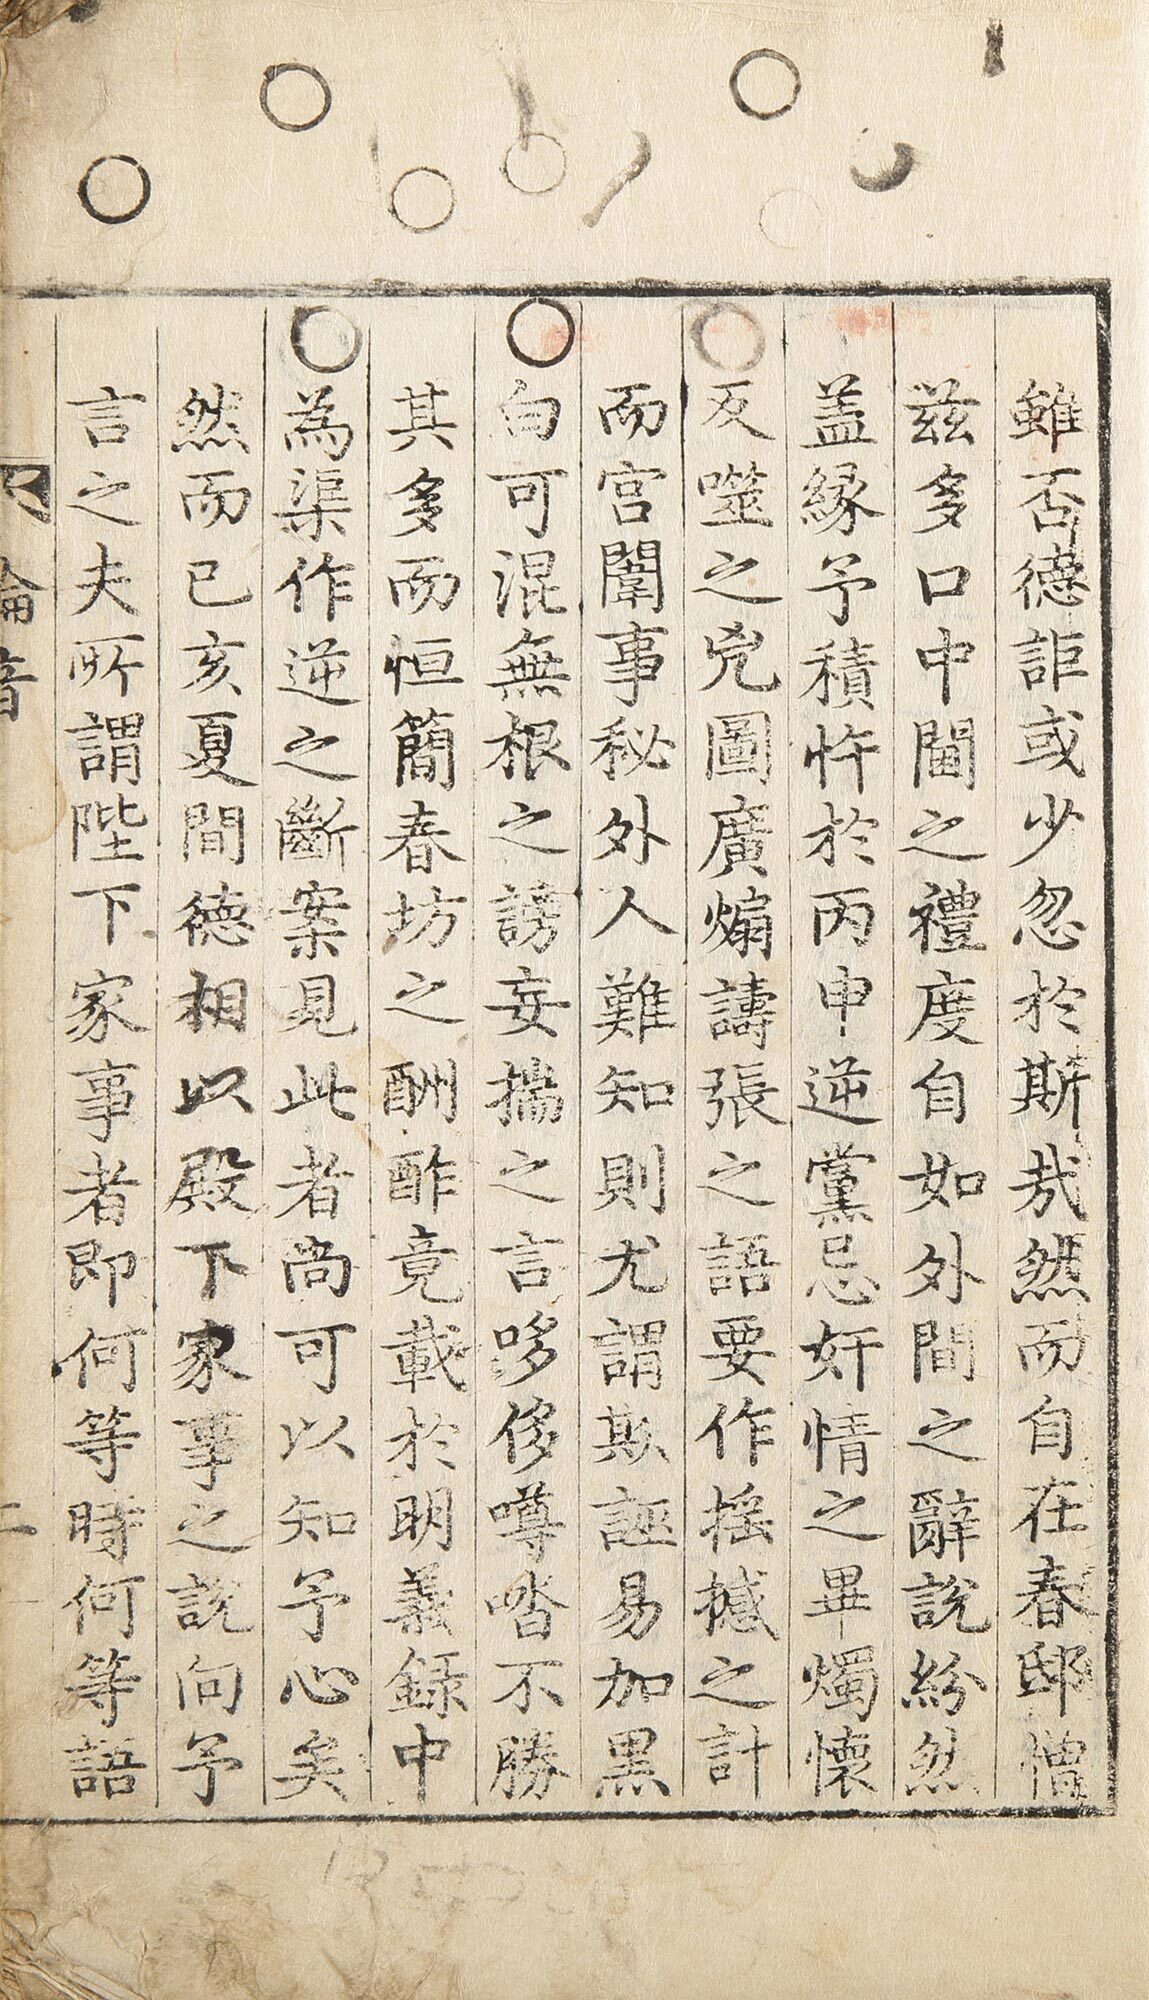 雖否德詎或少忽於斯哉然而自在春邸憎
玆多口中閫之禮度自如外間之辭說紛然
盖緣予積忤於丙申逆黨忌奸情之畢燭懷
反噬之兇圖廣煽譸張之語要作搖撼之計
而宮闈事秘外人難知則尤謂欺誣易加黑
白可混無根之謗妄揣之言哆侈噂沓不勝
其多而恒簡春坊之酬酢竟載於明義錄中
為渠作逆之斷案見此者尚可以知予心矣
然而己亥夏間德相以殿下家事之說向予
言之夫所謂陛下家事者即何等時何等語
綸音
二